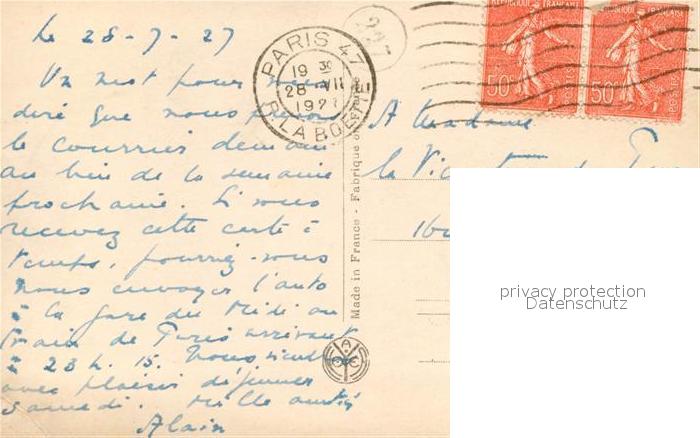 Le 28-7-27
Un mot pour vous
dire que nous
le courrier demain
au lieu de la semaine
prochaine. Si vous
recevez cette carte à
temps, pourriez-vous
nous envoyer l'auto
à la gare du Midi au
train de Paris arrivant
à 23h.15.
avec plaisir déjeuner
samedi. Mille amitiés
Alain
PARIS 47
19 30
28 VII
1927
R. LA BOETIE
227
REPUBLIQUE FRANÇAISE
50c
POSTES
50c
POSTES
Made in France - Fabriqué en France
A Madame
la
privacy protection
Datenschutz